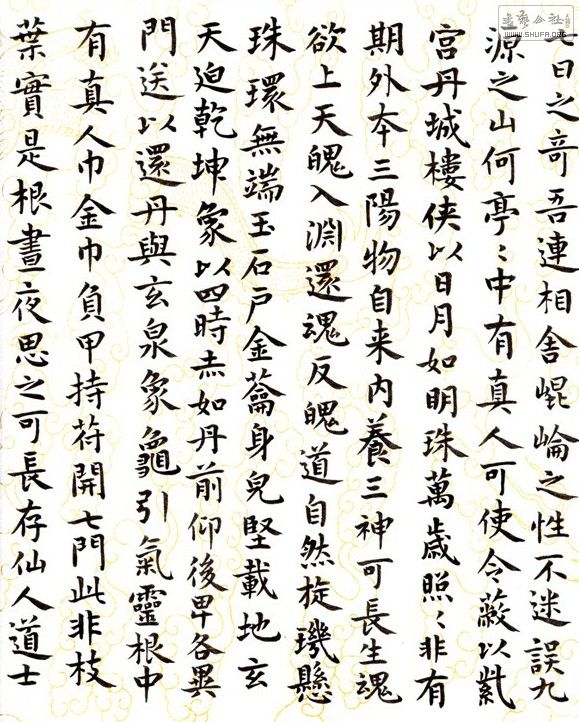 七日之奇吾連相舍崐崘之性不迷誤九
源之山何亭〻中有真人可使令蔽以紫
宫丹城樓俠以日月如明珠萬歲照〻非有
期外本三陽物自来内養三神可長生魂
欲上天魄入淵還魂反魄道自然旋璣懸
珠環無端玉石戶金蘥身皃堅載地玄
天迫乾坤象以四時赤如丹前仰後卑各異
門送以還丹與玄泉象龜引氣靈根中
有真人巾金巾負甲持苻開七門此非枝
葉實是根晝夜思之可長存仙人道士
WWW.SHUFA.ORG